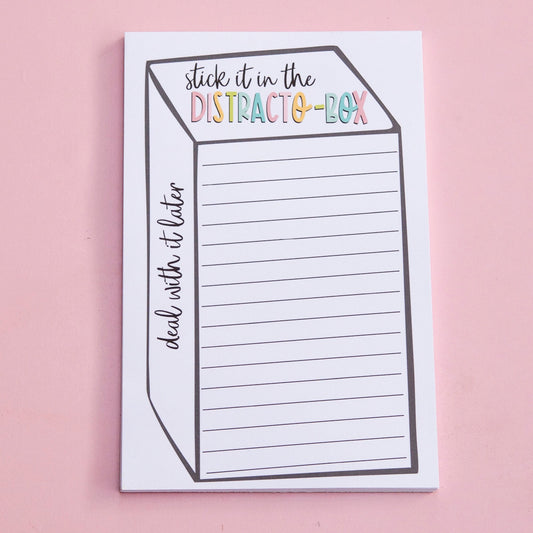 stick it in the
DISTRACTO-BOX
deal with it later